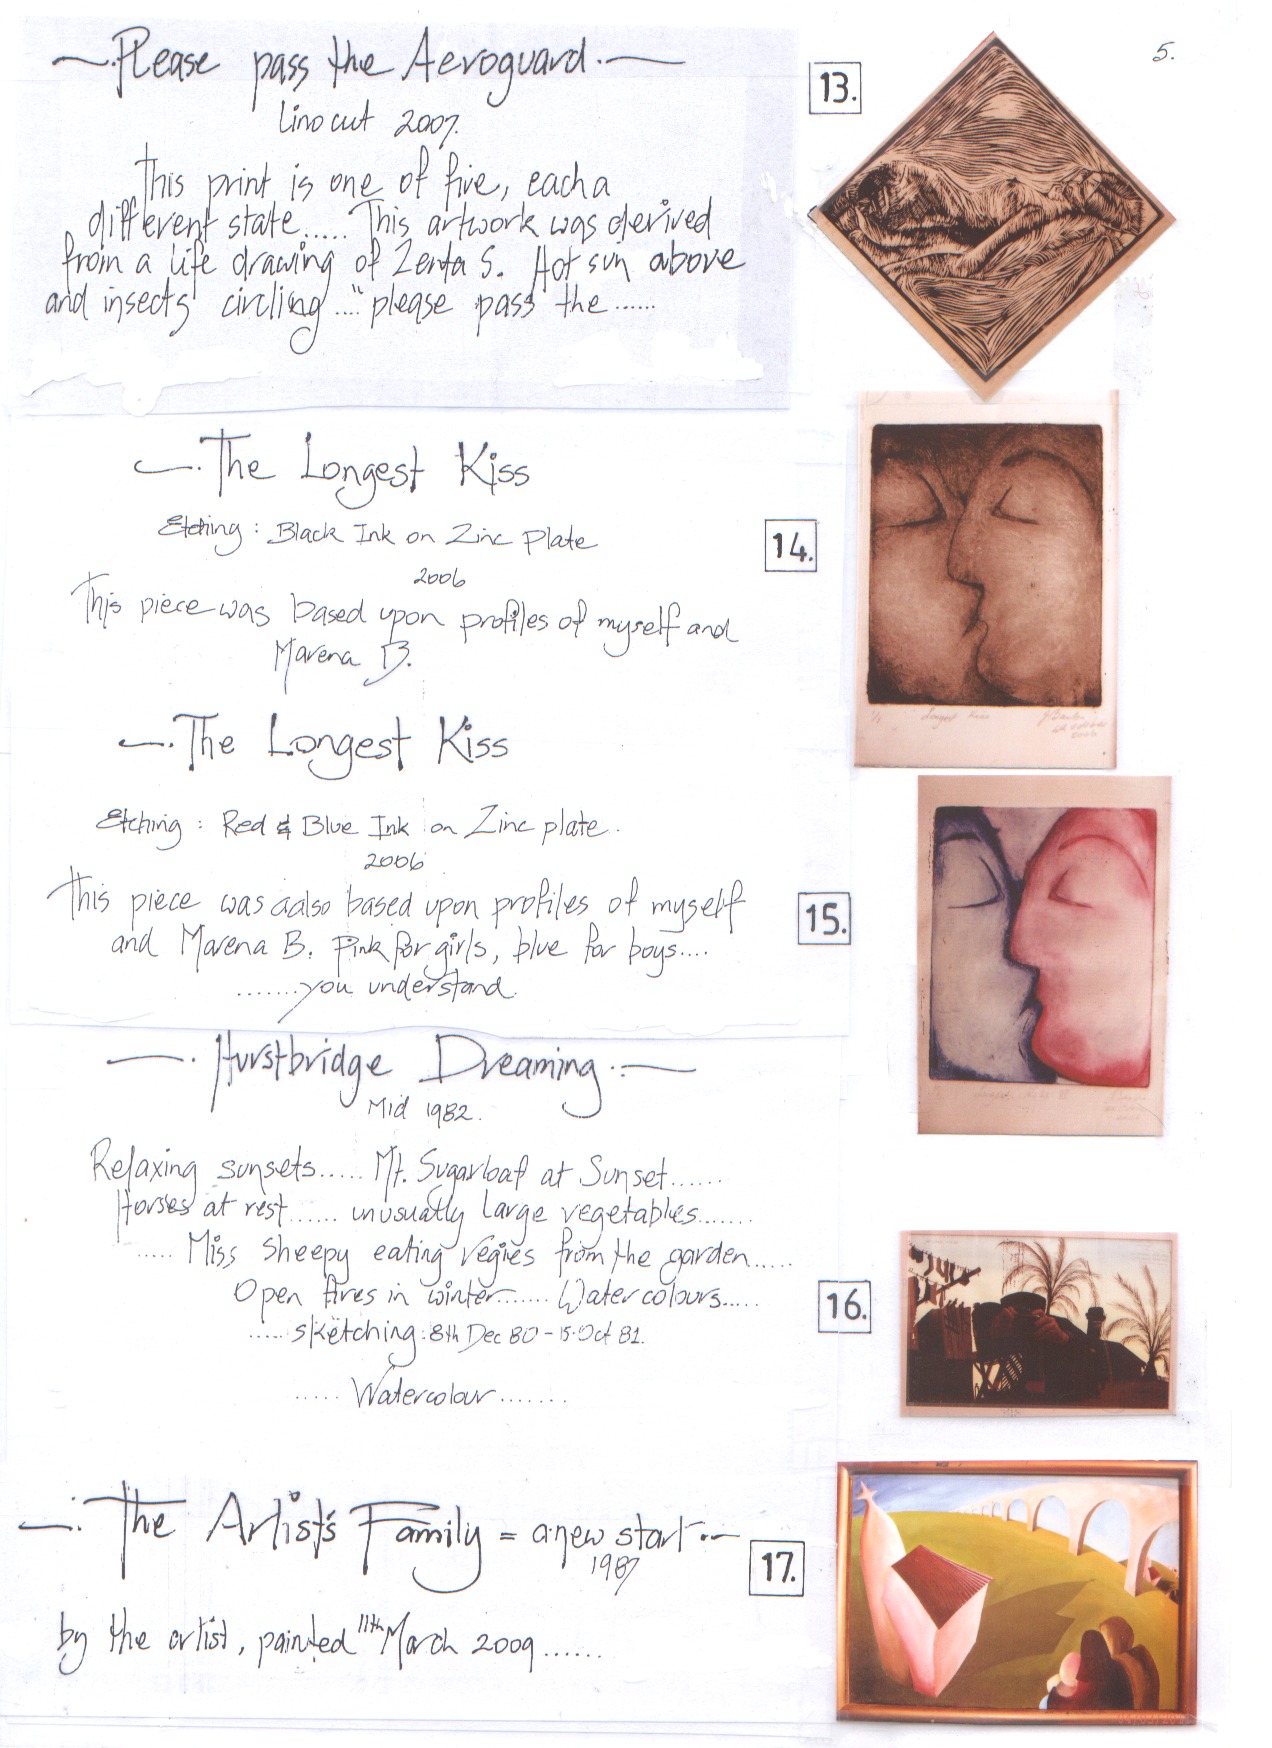 5.
Please pass the Aeroguard.
Linocut 2007.
13.
This print is one of five, each a
different state..... This artwork was derived
from a life drawing of Zenta S. Hot sun above
and insects circling...." please pass the......
The Longest Kiss
Etching : Black Ink on Zinc Plate
14.
2006
This piece was based upon profiles of myself and
Marena B.
1/1 Longest Kiss
2006
The Longest Kiss
Etching : Red & Blue Ink on Zinc plate.
2006
This piece was aalso based upon profiles of myself
15.
and Marena B. Pink for girls, blue for boys....
.......you understand.
Hurstbridge Dreaming
Mid 1982.
Relaxing sunsets..... Mt. Sugarloaf at Sunset......
Horses at rest...... unusually large vegetables.......
..... Miss Sheepy eating vegies from the garden.....
Open fires in winter...... Watercolours.....
16.
..... sketching: 8th Dec 80 - 15.Oct 81.
..... Watercolour.......
The Artist's Family = a new start
1987
17.
by the artist, painted 11th March 2009......